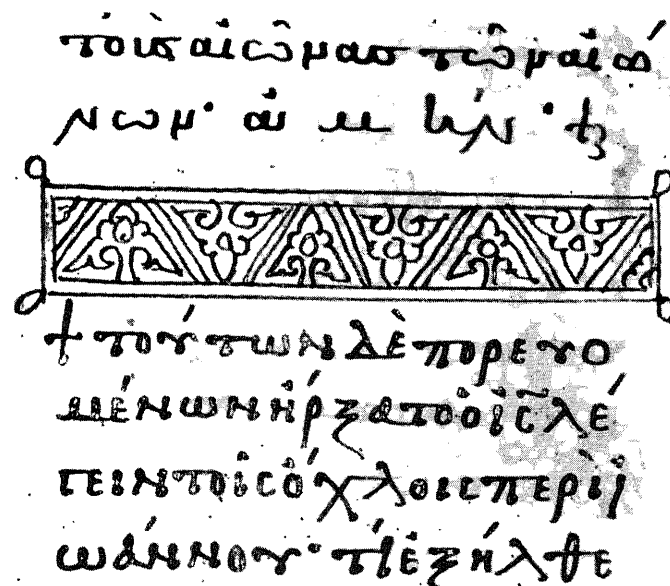 τοὺς αἰῶνας τῶν αἰώ
νων· ἀμήν·
+ τούτων δὲ πορευο
μένων ἤρξατο ὁ ἰ̅ς̅ λέ
γειν τοῖς ὄχλοις περὶ ἰ
ωάννου· τί ἐξήλθε